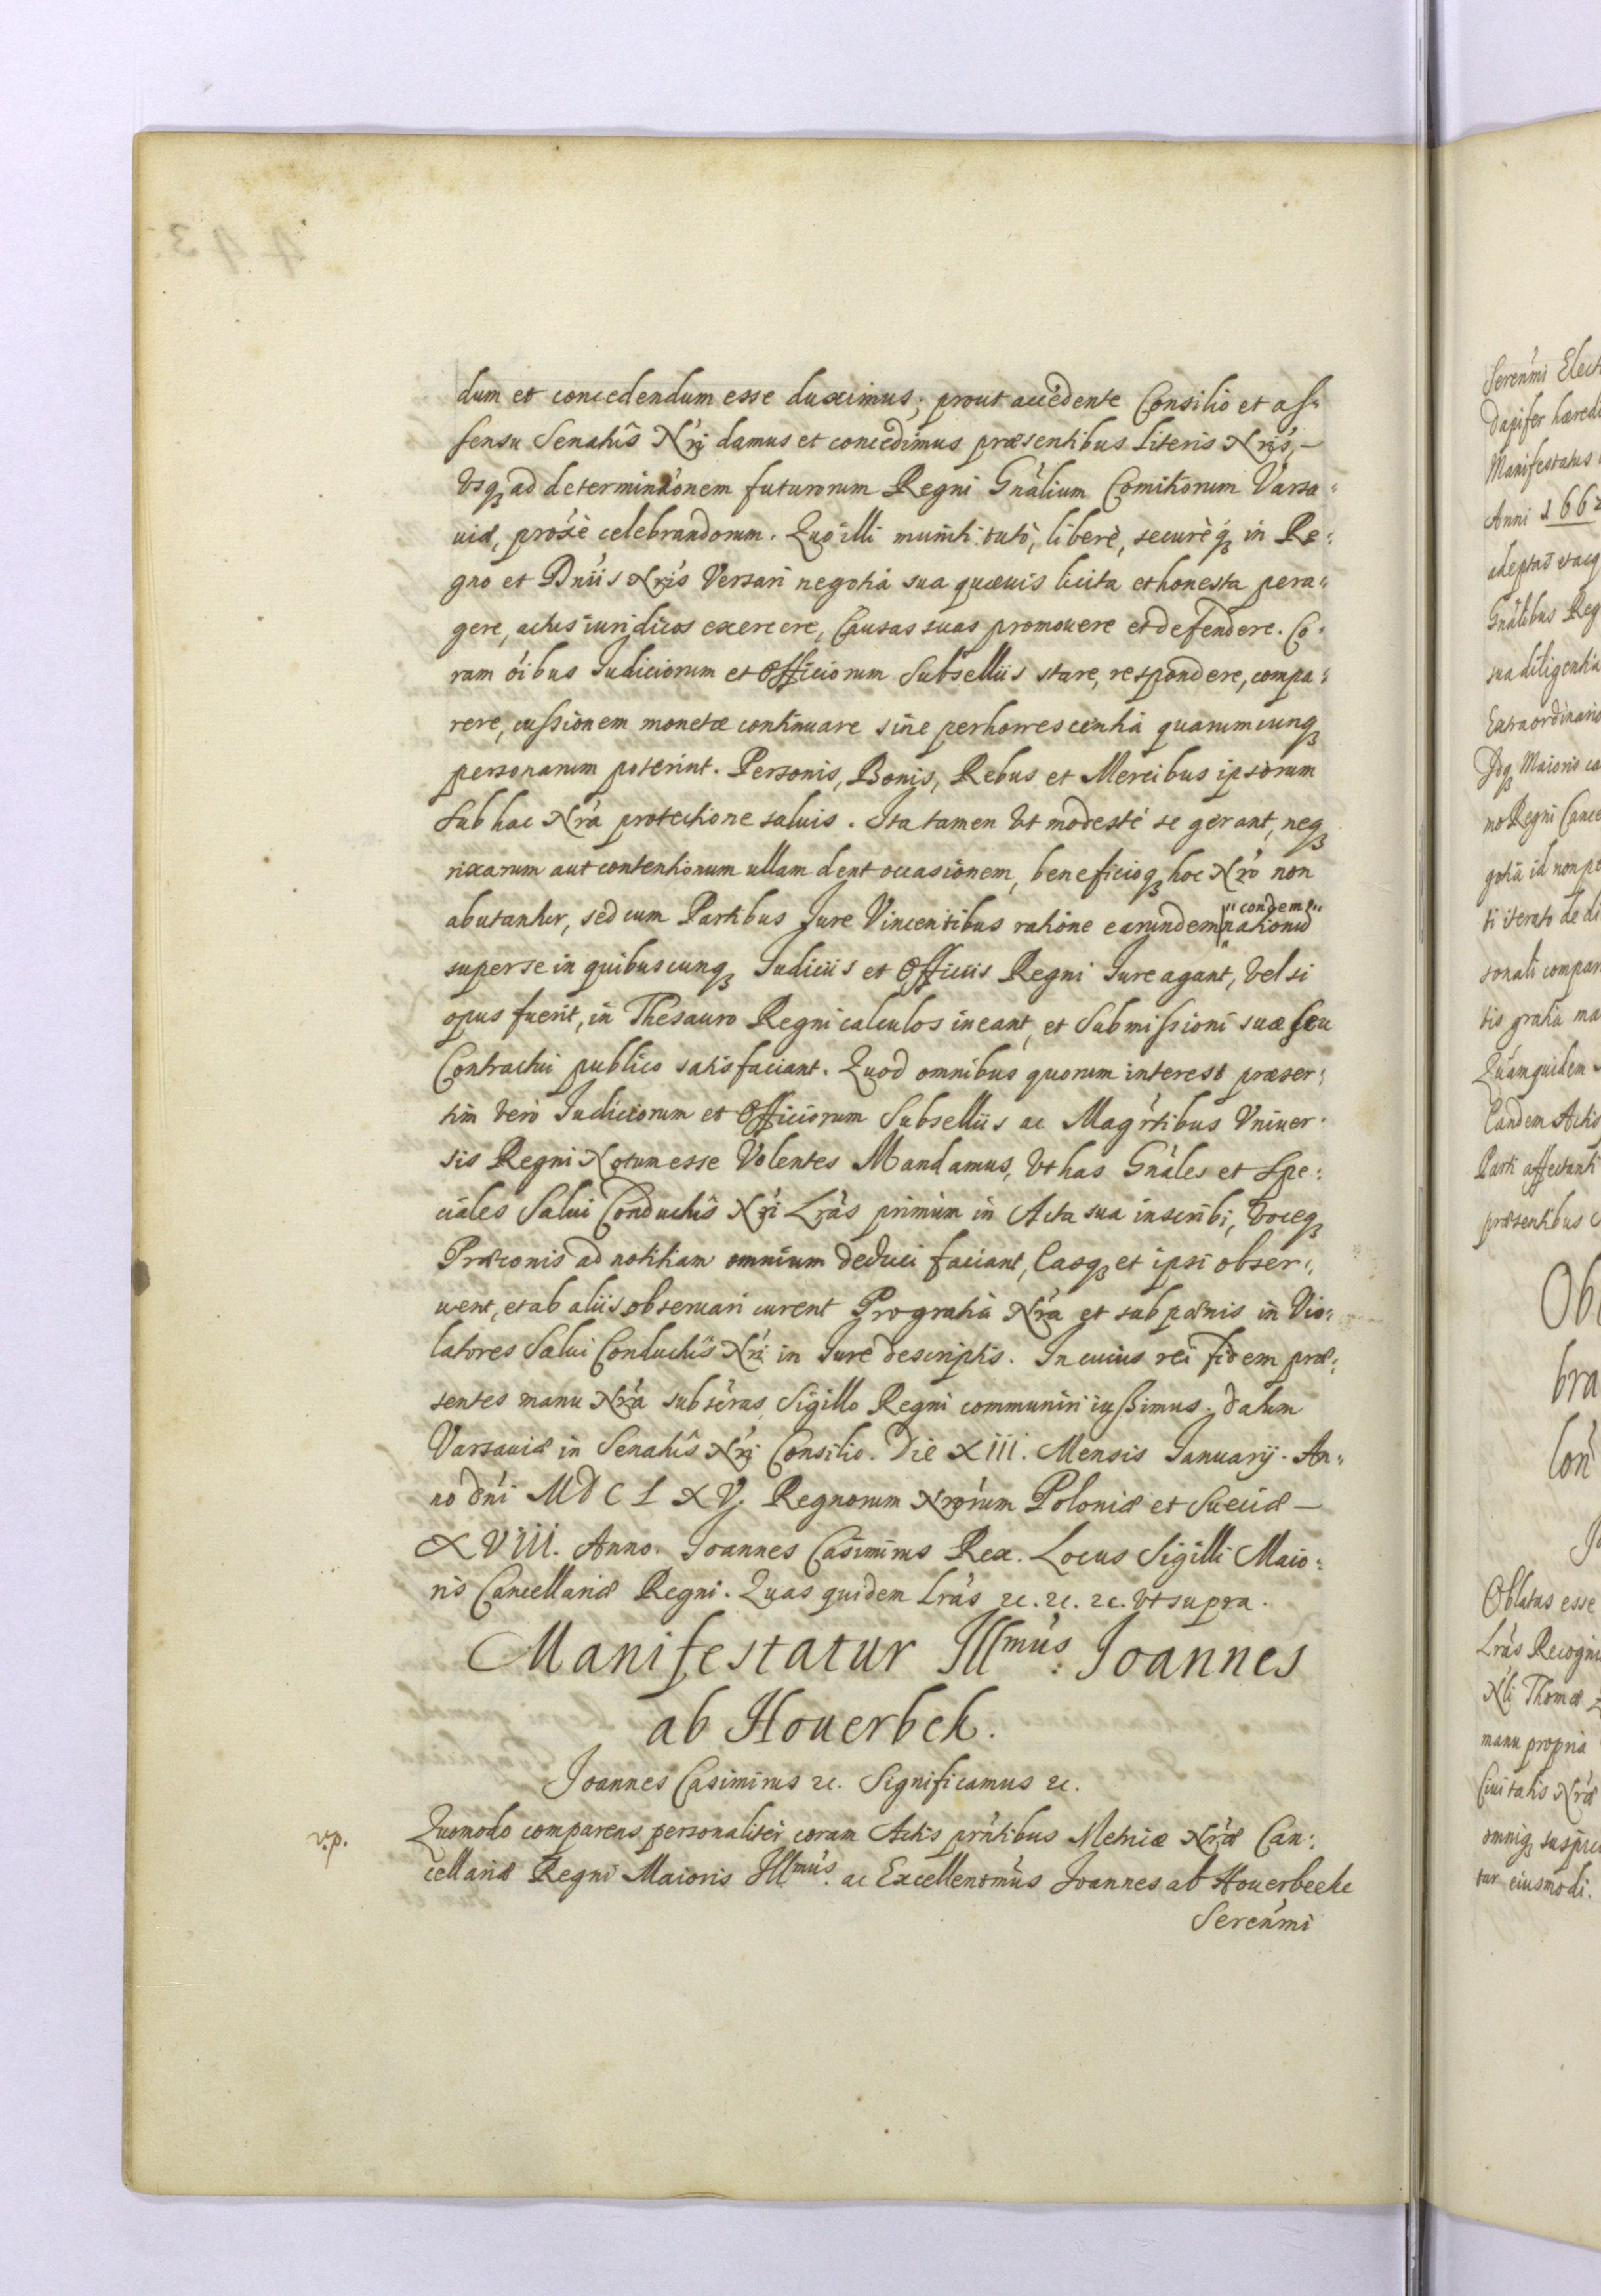 dum et concedendum esse duximus; prout accedente Consilio et as=
sensu Senatûs Nri damus et concedimus præsentibus literis Nris, —
Vsq ad determinãonem futurorum Regni Gnâlium Comitiorum Varsa=
uiæ, proxè celebrandorum. Quo illi muniti tutò, liberè, securèq in Re=
gno et Dnÿs Nris Versari negotia sua quæuis licita et honesta pera=
gere, actus iuridicos exercere, Causas suas promouere et defendere. Co=
ram oĩbus Iudiciorum et Officiorum Subselliis stare, respondere, compa=
rere, cussionem monetæ continuare sine perhorrescentia quarumcunq
personarum poterint. Personis, Bonis, Rebus et Mercibus ipsorum
Sub hac Nrâ protectione saluis. Ita tamen Vt modestè se gerant, neq
rixarum aut contentionum ullam dent occasionem, beneficioq hoc Nro non
abutantur, sed cum Partibus Jure Vincentibus ratione earundem "condem="nationũ
super se in quibuscunq Iudiciis et Officiis Regni Iure agant, Vel si
opus fuerit, in Thesauro Regni calculos ineant, et Submissioni suæ seu
Contractui publico satisfaciant. Quod omnibus quorum interest præser=
tim verò Iudiciorum et Officiorum Subselliis ac Magrtibus Vniuer=
sis Regni Notum esse Volentes Mandamus, Vt has Gnâles et Spe=
ciales Salui Conductûs Nri Lrâs primùm in Acta sua inscribi, Voceq
Præconis ad notitiam omnium deduci faciant, Easq et ipsi obser=
uent, et ab aliis obseruari curent Pro gratia Nrâ et sub pœnis in Vio=
latores Salui Conductûs Nri in Iure descriptis. In cuius rei fidem præ=
sentes manu Nrâ subscras, Sigillo Regni communiri iussimus. Datum
Varsauiæ in Senatûs Nri Consilio. Die XIII. Mensis Ianuarij. An=
no dni MDCLXV. Regnorum Nrorum Poloniæ et Sueciæ —
XVIII. Anno. Joannes Casimirus Rex. Locus Sigilli Maio=
ris Cancellariæ Regni. Quas quidem Lrâs &c. &c. &c. Vt supra.
Manifestatur Illmus: Joannes
ab Houerbek.
Joannes Casimirus &c. Significamus &c.
v.p. Quomodo comparens personaliter coram Actis prntibus Metricæ Nræ Can=
cellariæ Regni Maioris Illmus. ac Excellentmus Joannes ab Houerbecke
Serenmi
Serenmi Elect
Dapifer hæredi
Manifestatus
Anni 1662
adeptas et acq
Gnâlibus Reg
sua diligentia
Extraordinario
Maioris ca
mo Regni Cance
gotia id non po
ti iterato de di
sonali compar
tis gratia ma
Quamquidem
Eandem Actis
Parti affectanti
præsentibus
Ob
bra
Con
Oblatas esse
Lrâs Recogni
Nli Thomæ
manu propria
Ciuitatis Nræ
omniq suspici
tur eiusmodi.